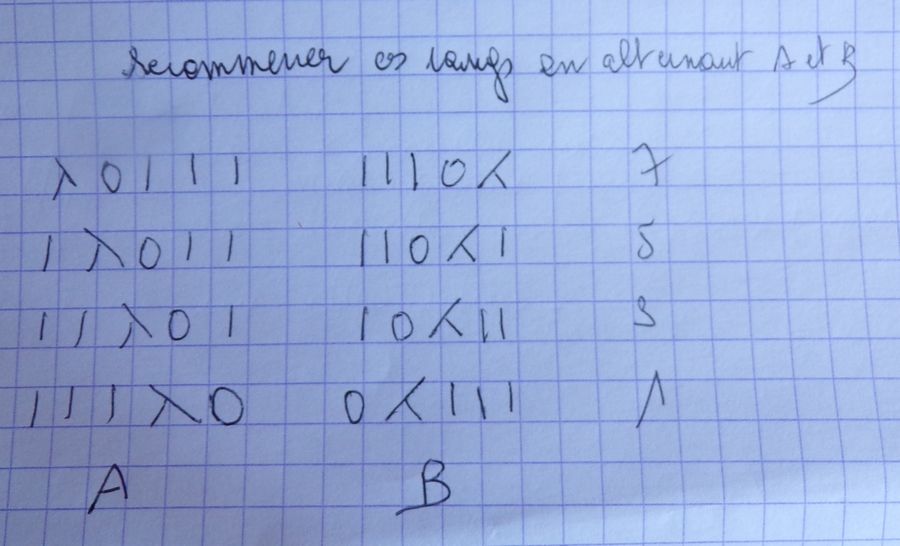 Recommencer ces rangs en alternant A et B
λ 0 | | | | | | 0 ⋌ 7
| λ 0 | | | | 0 ⋌ | 5
| | λ 0 | | 0 ⋌ | | 3
| | | λ 0 0 ⋌ | | | 1
A B